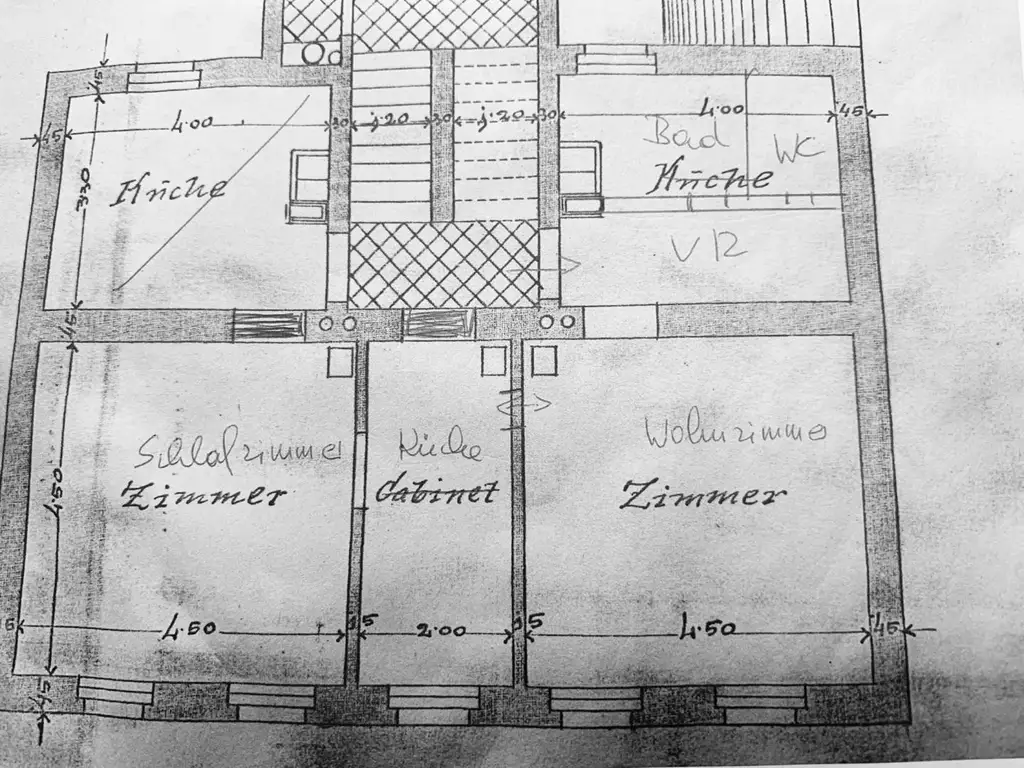 45
4.00
30
1.20
30
1.20
30
4.00
45
45
Bad
WC
Küche
Küche
330
VR
45
Schlafzimmer
Küche
Wohnzimmer
Zimmer
Cabinet
Zimmer
4.50
4.50
15
2.00
15
4.50
45
45